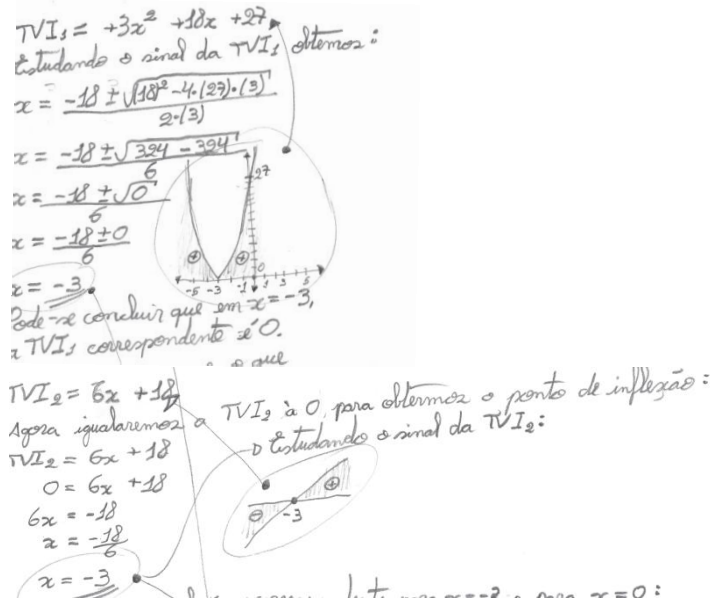 TVI₁ = +3x² +18x +27
Estudando o sinal da TVI₁ obtemos:
x = -18 ± √(18)² -4·(27)·(3)
2·(3)
x = -18 ± √324 - 324
6
x = -18 ± √0
6
x = -18 ± 0
6
x = -3
27
⊕ ⊕
0
-5 -3 -1 1 3 5
Pode-se concluir que em x = -3,
a TVI₁ correspondente é 0.
o que
TVI₂ = 6x +18
Agora igualaremos a TVI₂ à 0, para obtermos o ponto de inflexão:
Estudando o sinal da TVI₂:
TVI₂ = 6x +18
0 = 6x +18
6x = -18
x = -18
6
x = -3
⊖ -3 ⊕
para x = -3 e para x = 0: